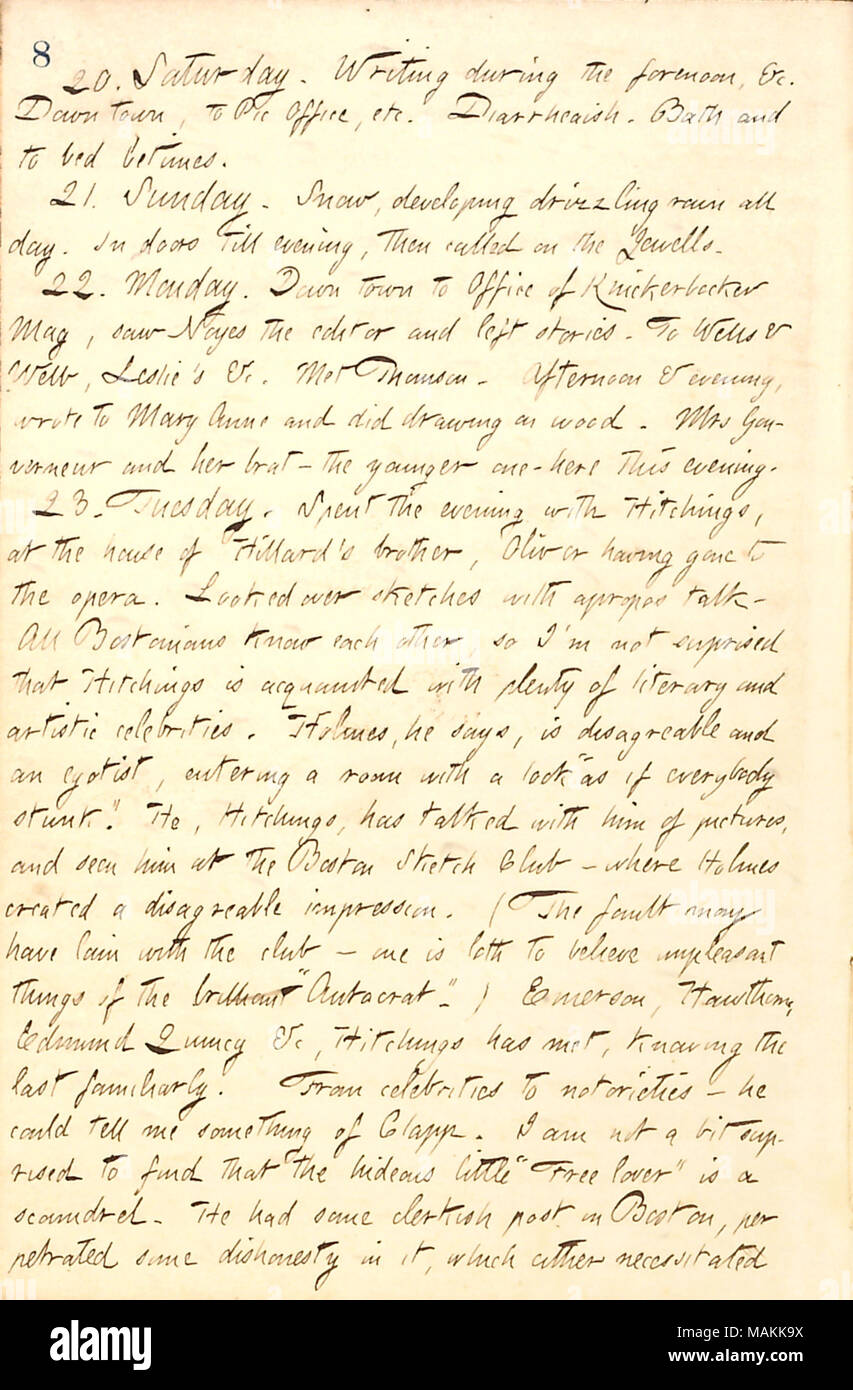 8
20. Saturday. Writing during the forenoon, &c.
Down town, to Pic Office, etc. Diarrheaish. Bath and
to bed betimes.
21. Sunday. Snow, developing drizzling rain all
day. In doors till evening, then called on the Jewells.
22. Monday. Down town to Office of Knickerbocker
Mag, saw Noyes the editor and left stories. To Wells &
Webb, Leslie's &c. Met Thomson. Afternoon & evening,
wrote to Mary Anne and did drawing on wood. Mrs Gou-
verneur and her brat — the younger one — here this evening.
23. Tuesday. Spent the evening with Hitchings,
at the house of Hillard's brother, Oliver having gone to
the opera. Looked over sketches with apropos talk —
All Bostonians know each other, so I'm not suprised
that Hitchings is acquainted with plenty of literary and
artistic celebrities. Holmes, he says, is disagreable and
an egotist, entering a room with a look "as if everybody
stunk." He, Hitchings, has talked with him of pictures,
and seen him at the Boston Sketch Club — where Holmes
created a disagreable impression. (The fault may
have lain with the club — one is loth to believe unpleasant
things of the brilliant "Autocrat".) Emerson, Hawthorne,
Edmund Quincy &c, Hitchings has met, knowing the
last familiarly. From celebrities to notorieties — he
could tell me something of Clapp. I am not a bit sup-
rised to find that the hideous little "Free lover" is a
scoundrel. He had some clerkish post in Boston, per
petrated some dishonesty in it, which either necessitated
alamy
Image ID: MAKK9X
www.alamy.com